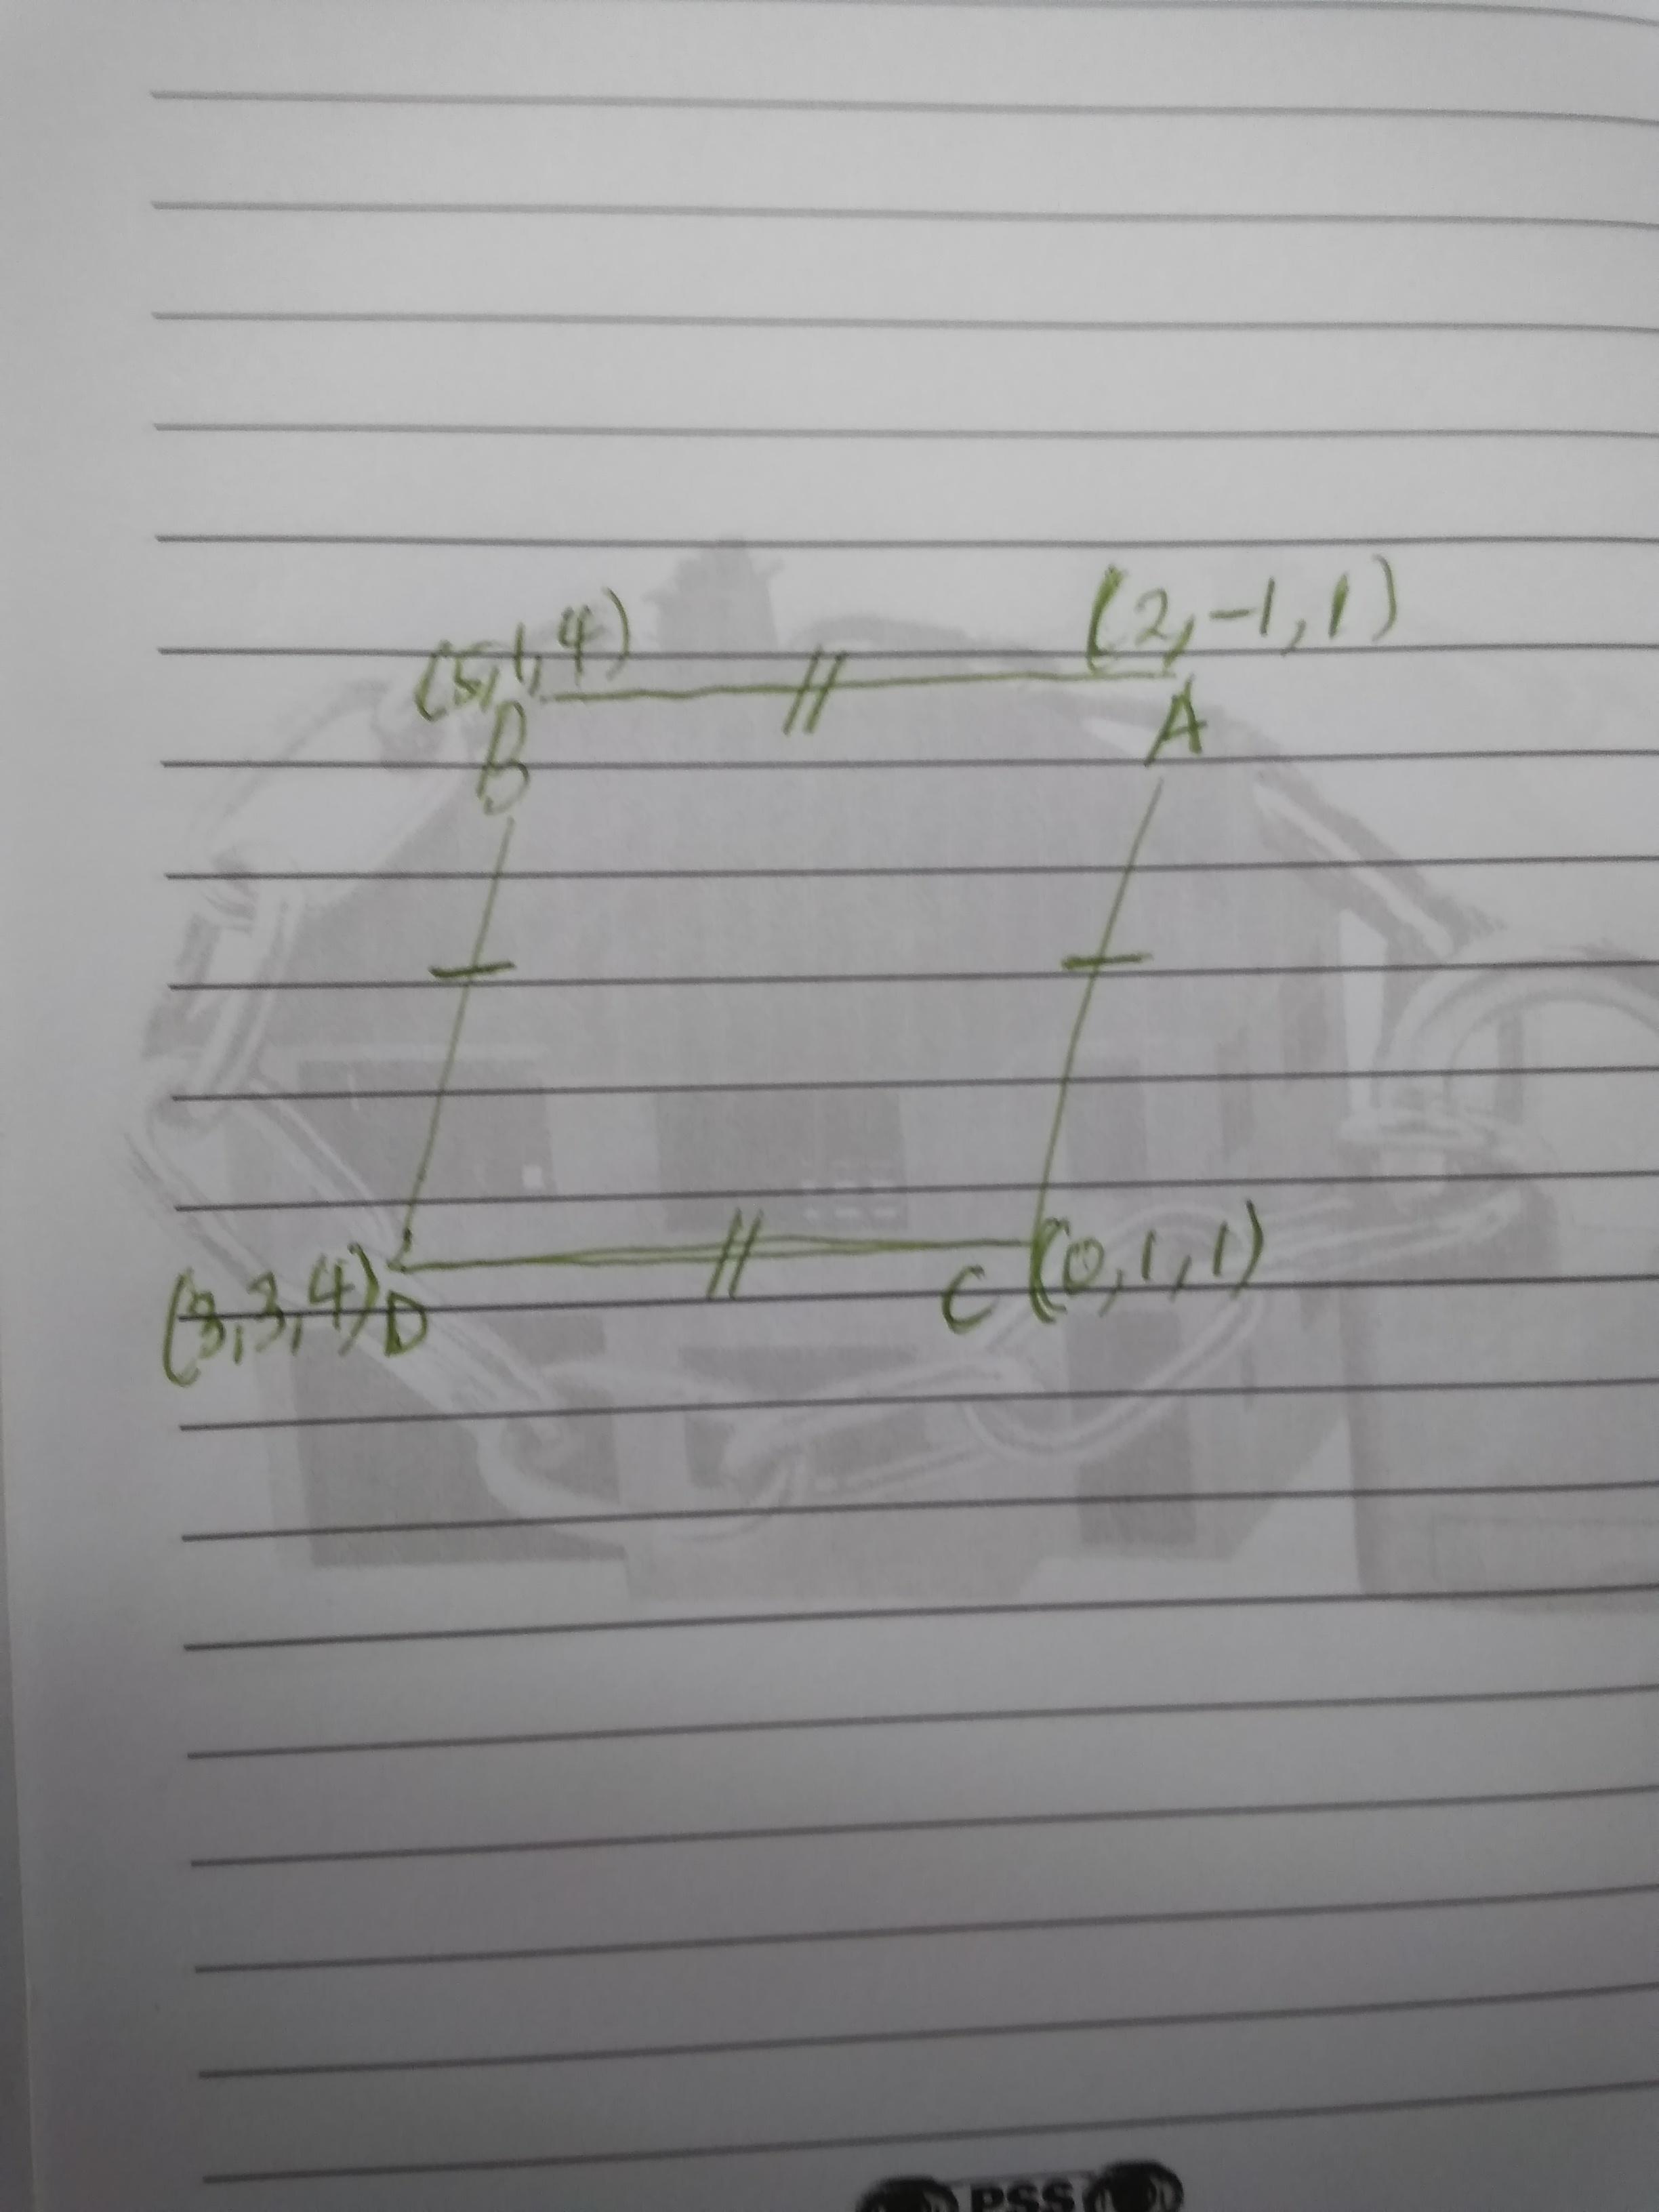 (5,1,4) (2,-1,1)
B A
(3,3,4) D C (0,1,1)
PSS